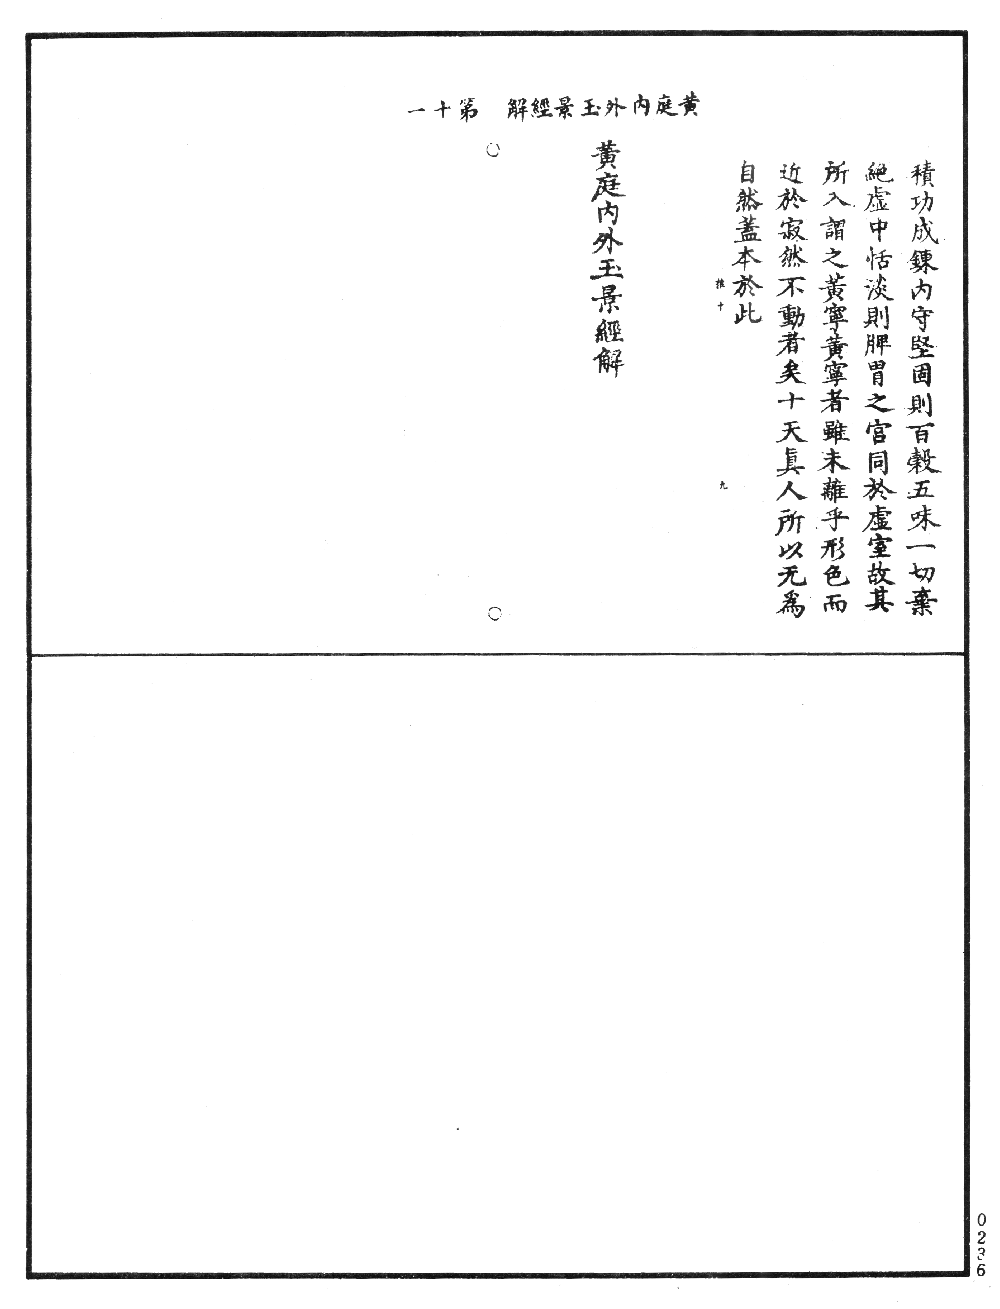 黄庭内外玉景經解　第十一
積功成鍊内守堅固則百穀五味一切棄
絕虛中恬淡則脾胃之宫同於虛室故其
所入謂之黄寧黄寧者雖未離乎形色而
近於寂然不動者矣十天真人所以无爲
自然蓋本於此
推十
九
黄庭内外玉景經解
0236